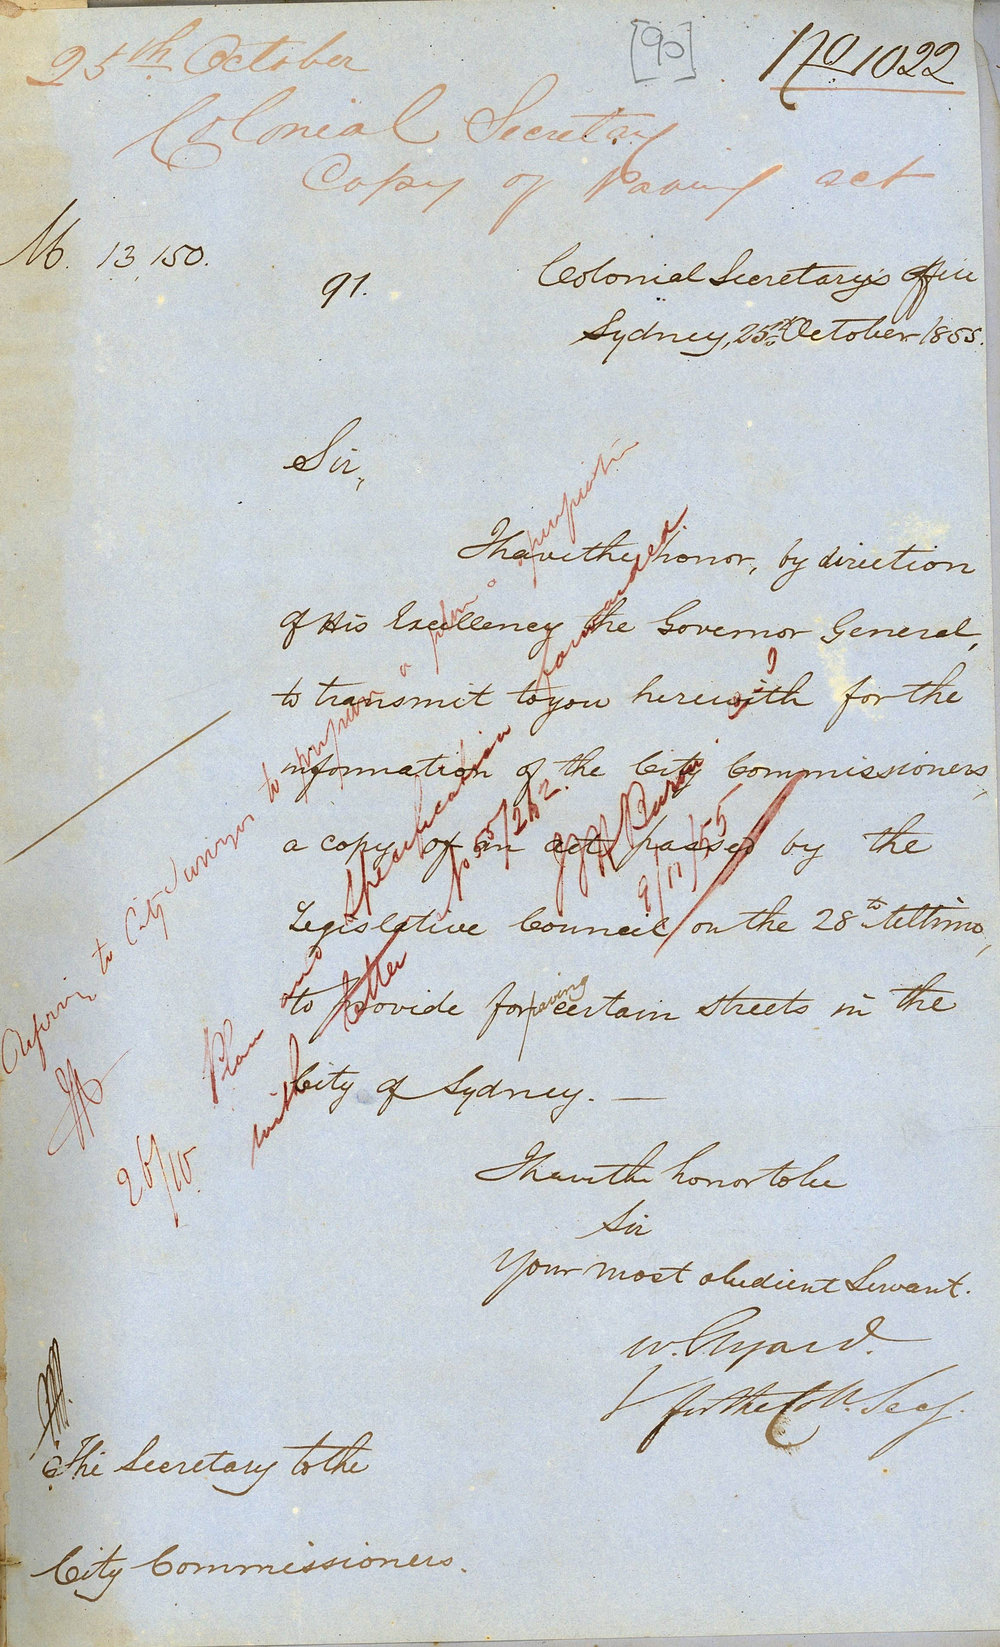 25th October
[90]
No 1022
Colonial Secretary
Copy of Paving act
M. 13,150.
91.
Colonial Secretary's Office
Sydney, 25th October 1855.
Sir,
I have the honor, by direction
of His Excellency the Governor General,
to transmit to you herewith for the
information of the City Commissioners,
a copy of an act passed by the
Legislative Council on the 28th Ultimo,
to provide for paving certain streets in the
City of Sydney. —
I have the honor to be
Sir
Your most obedient Servant.
W. Elyard.
for the Coll. Secy.
Referring to City Surveyor to prepare a plan & specification
26/10.
Plan and specification forwarded
with letter No 55/262.
9/11/55
The Secretary to the
City Commissioners.